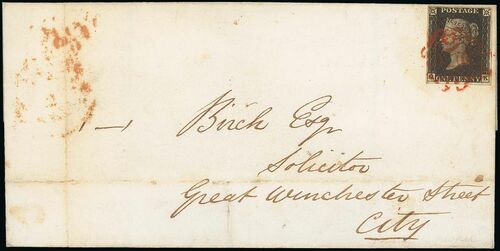 POSTAGE
ONE PENNY
— Birch Esqr
Solicitor
Great Winchester Street
City